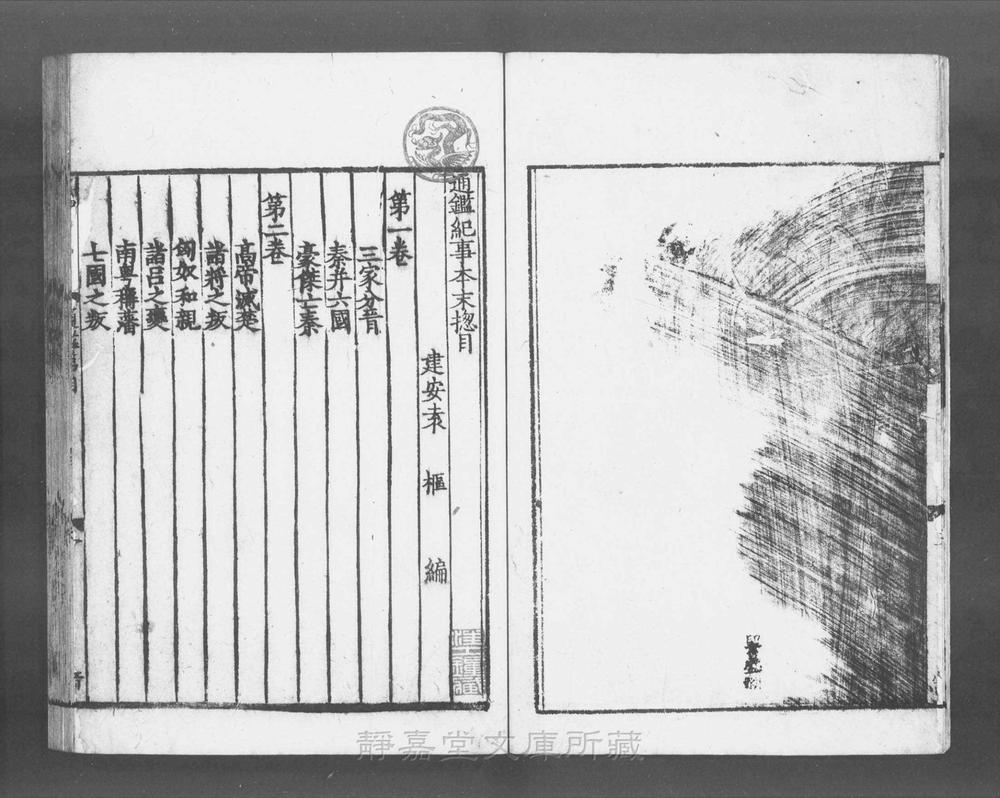 通鑑紀事本末揔目
建安袁 樞 編
第一卷
三家分晉
秦并六國
豪傑亡秦
第二卷
髙帝滅楚
諸將之叛
匈奴和親
諸吕之變
南粤稱藩
七國之叛
靜嘉堂文庫所藏